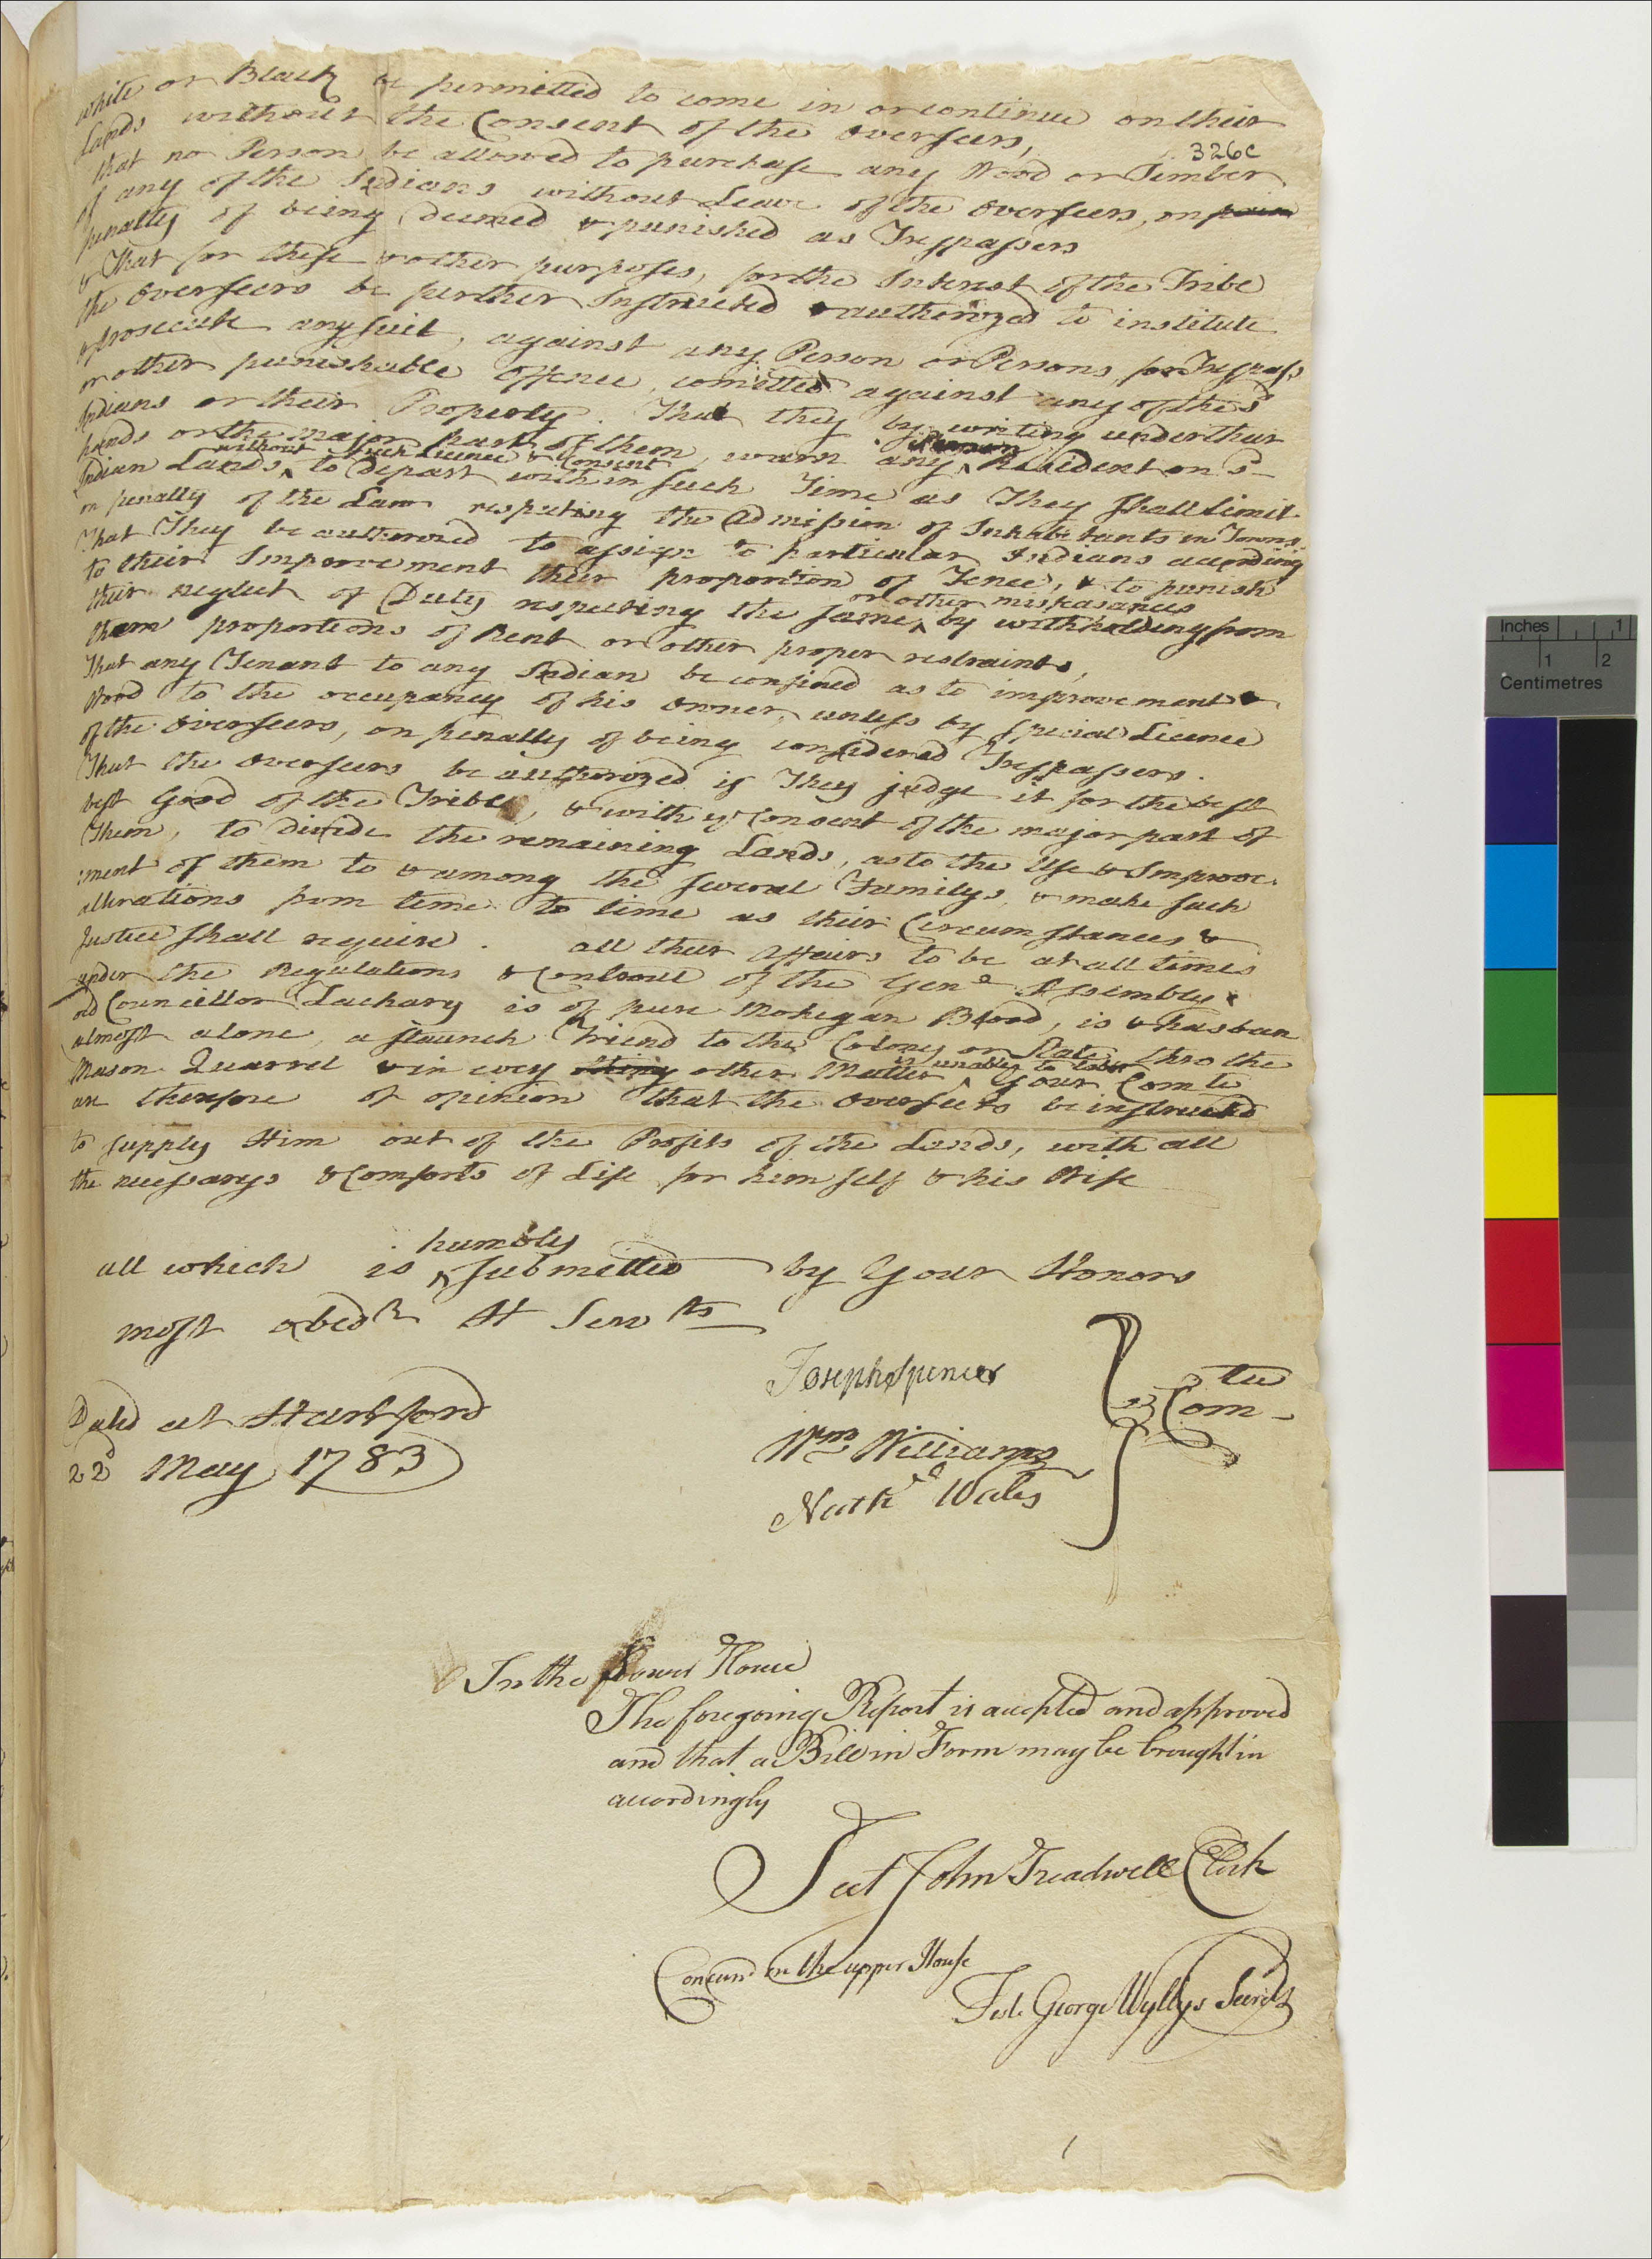 white or Black be permitted to come in or continue on their
Lands without the Consent of the Overseers,
326c
that no Person be allowed to purchase any Wood or Timber
of any of the Indians without Leave of the Overseers, on pain
penalty of being deemed & punished as Trespassers
& That for these & other purposes, for the Interest of the Tribe
the Overseers be further Instructed & authorized to institute
& prosecute any suit, against any Person or Persons, for Trespass
or other punishable offence, comitted against any of the sd
Indians or their Property. That they by writing under their
hands or the major part of them, warn any Person Resident on sd
without such Licence & Consent
Indian Lands, to depart within such Time as They shall limit
on penalty of the Law respecting the Admission of Inhabitants in Towns,
That They be authorized to assign to particular Indians according
to their Improvement their proportion of Fence, & to punish
or other misfeasances
their neglect of Duty respecting the same, by withholding from
them proportions of Rent or other proper restraints,
That any Tenant to any Indian be confined as to improvement &
Wood to the occupancy of his owner, unless by special Licence
of the Overseers, on penalty of being considered Trespassers.
That the Overseers be authorized if They judge it for the best
best Good of the Tribe, & with ye Consent of the major part of
Them, to divide the remaining Lands, as to the Use & Improve-
:ment of them to & among the several Familys, & make such
alterations from time to time as their Circumstances &
Justice shall require. all their Affairs to be at all times
under the Regulations & Controul of the Genl Assembly.
old Councillor Zachary is of pure Mohegan Blood, is & has been
almost alone, a staunch Friend to the Colony or State, thro the
is unable to labor
Mason Quarrel & in every thing other Matter, Your Comtee
are therefore of opinion that the Overseers be instructed
to supply Him out of the Profits of the Lands, with all
the necessarys & Comforts of Life for himself & his Wife
humbly
all which is submitted by Your Honors
most obedt H Servts
Joseph Spencer
Wm Williams
Nathl Wales
Comtee
Dated at Hartford
22d May 1783
In the Lower House
The foregoing Report is accepted and approved
and that a Bill in Form may be brought in
accordingly
Test John Treadwell Clerk
Concurd in the upper House
Test George Wyllys Secrety
Inches 1
1 2
Centimetres